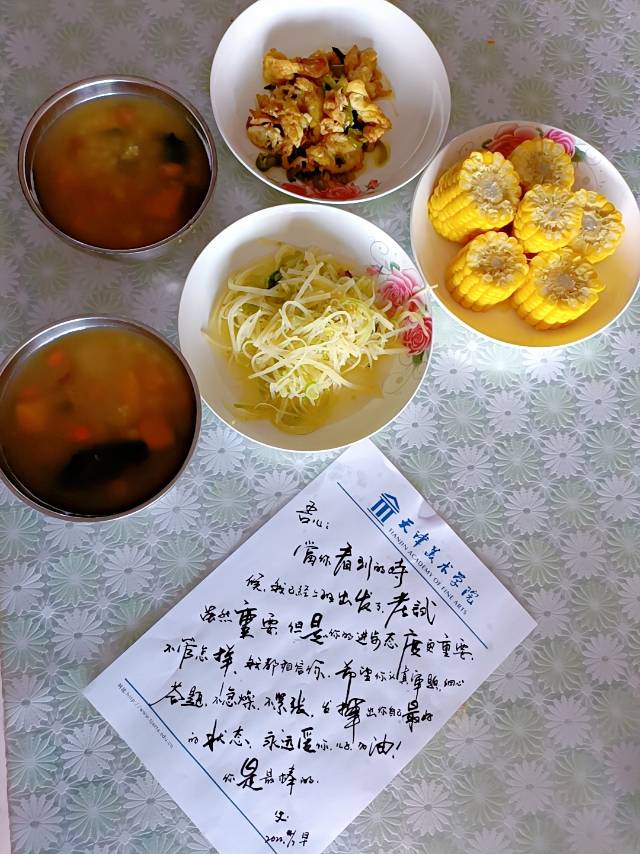 天津美术学院
TIANJIN ACADEMY OF FINE ARTS
吾心:
當你看到的時
候,我已经上班出发了,考試
虽然重要,但是你的进步态度更重要,
不管怎样,我都相信你,希望你认真审题,细心
答题,不急燥,不紧张,发揮出你自己最好
的状态,永远爱你,儿子,加油!
你是最棒的.
父
早